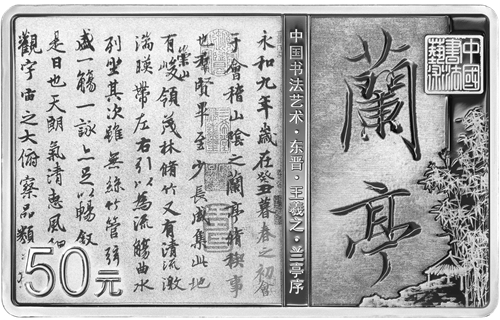 永和九年歲在癸丑暮春之初會
于會稽山陰之蘭亭脩禊事
也羣賢畢至少長咸集此地
有崇山峻領茂林脩竹又有清流激
湍暎帶左右引以為流觴曲水
列坐其次雖無絲竹管弦
盛一觴一詠亦足以暢叙
是日也天朗氣清惠風和
觀宇宙之大俯察品類
50元
中国书法艺术·东晋·王羲之·兰亭序
蘭亭
中國書法藝術